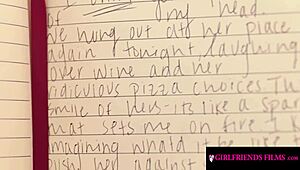 of my head.
We hung out at her place
again tonight, laughing
over wine and her
ridiculous pizza choices. Th
smile of hers-its like a spar
that sets me on fire. I k
imagining what'd it be like t
her against
GIRLFRIENDS FILMS.COM